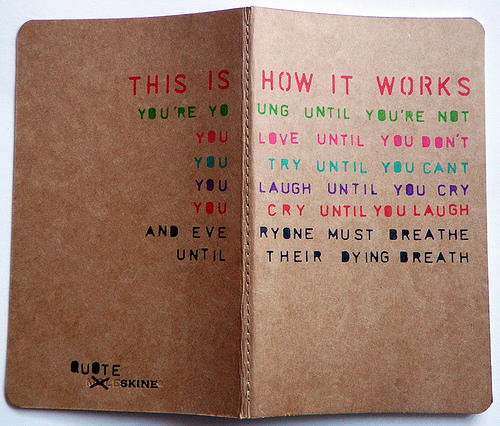 THIS IS HOW IT WORKS
YOU'RE YOUNG UNTIL YOU'RE NOT
YOU LOVE UNTIL YOU DON'T
YOU TRY UNTIL YOU CANT
YOU LAUGH UNTIL YOU CRY
YOU CRY UNTIL YOU LAUGH
AND EVERYONE MUST BREATHE
UNTIL THEIR DYING BREATH
QUOTE
MOLESKINE